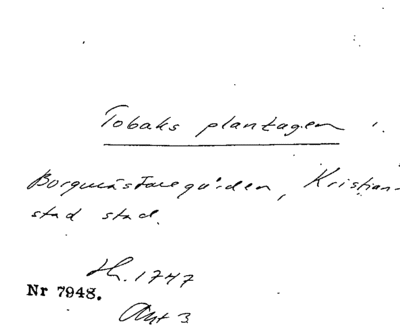 Tobaks plantagen
Borgmästaregården, Kristian-
stad stad.
H. 1747
Nr 7948.
Ant 3